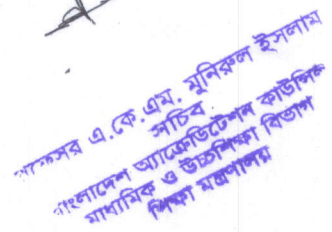 প্রফেসর এ.কে.এম. মুনিরুল ইসলাম
সচিব
বাংলাদেশ অ্যাক্রেডিটেশন কাউন্সিল
মাধ্যমিক ও উচ্চশিক্ষা বিভাগ
শিক্ষা মন্ত্রণালয়